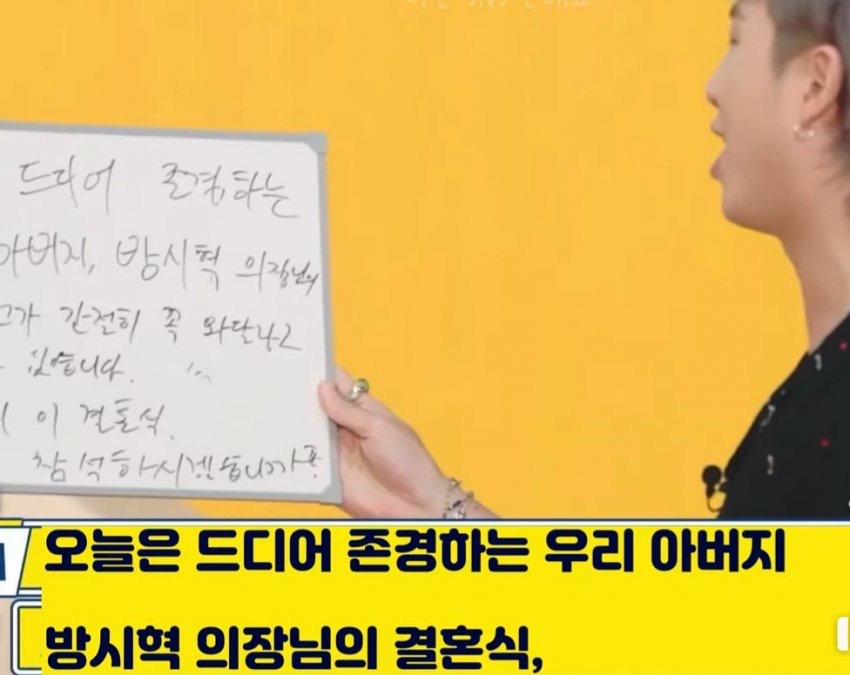 드디어 존경하는
아버지, 방시혁 의장님의
간절히 꼭 와달라고
있습니다.
이 결혼식,
참석하시겠습니까?
오늘은 드디어 존경하는 우리 아버지
방시혁 의장님의 결혼식,